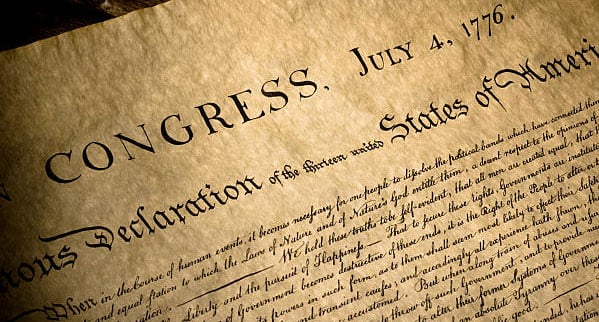 N CONGRESS, JULY 4, 1776.
mous Declaration of the thirteen united States of Ameri
When in the Course of human events, it becomes necessary for one people to dissolve the political bands which have connected them
and equal station to which the Laws of Nature and of Nature's God entitle them, a decent respect to the opinions of
We hold these truths to be self-evident, that all men are created equal, that th
Liberty and the pursuit of Happiness.— That to secure these rights, Governments are institute
of Government becomes destructive of these ends, it is the Right of the People to alter or
its powers in such form, as to them shall seem most likely to effect their Safety
and transient causes; and accordingly all experience hath shewn,
accustomed. But when a long train of abuses and
to throw off such Government, and to provide new
to alter their former Systems of Government
an absolute Tyranny over these